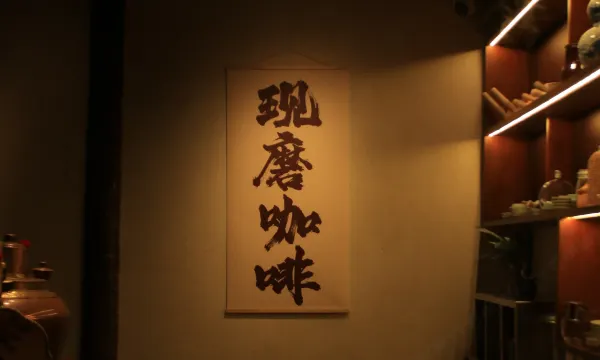 现磨咖啡